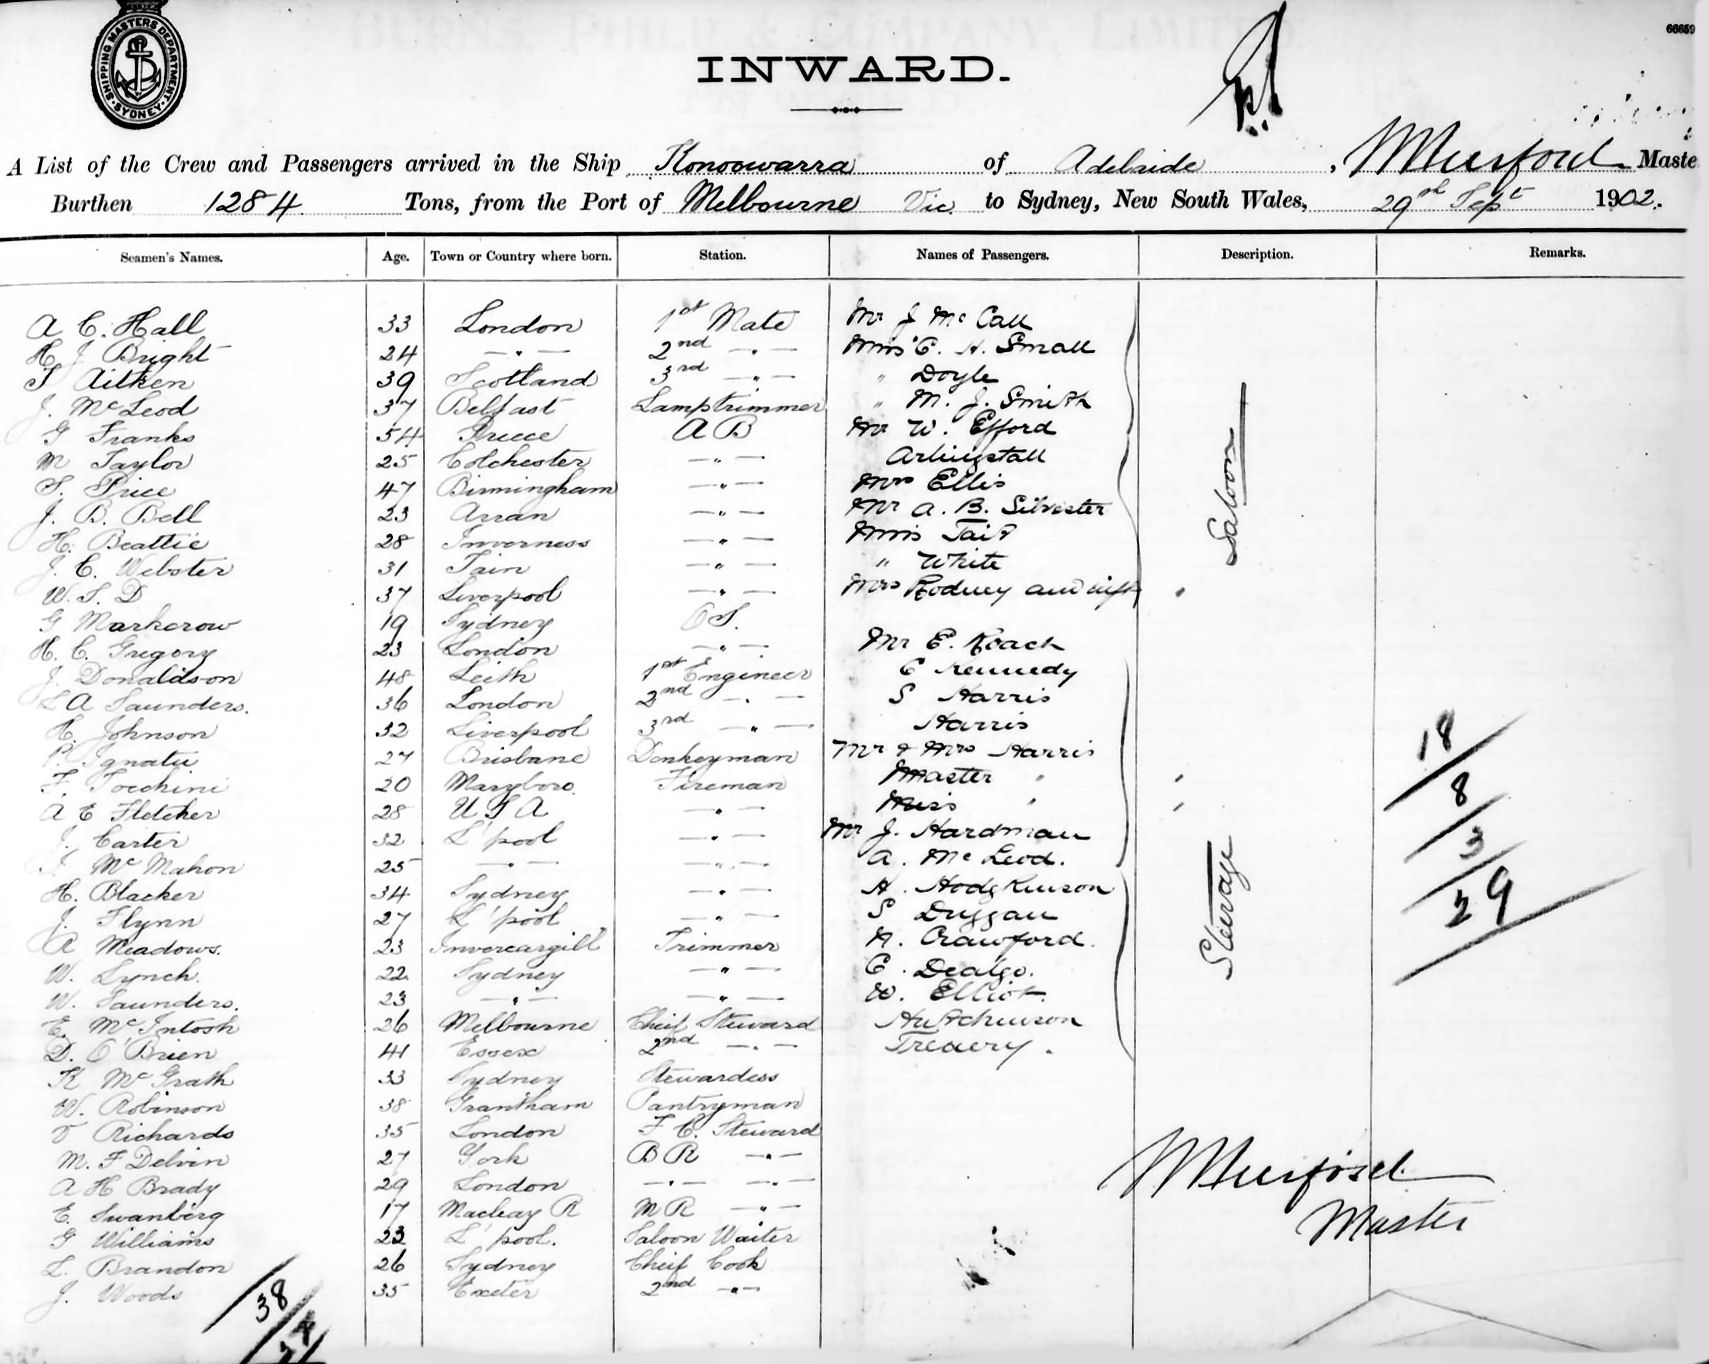 SHIPPING MASTERS DEPARTMENT SYDNEY
66659
INWARD.
A List of the Crew and Passengers arrived in the Ship Konoowarra of Adelaide, Master
Burthen 1284 Tons, from the Port of Melbourne Vic. to Sydney, New South Wales, 29th Sept 1902.
Seamen's Names. Age. Town or Country where born. Station. Names of Passengers. Description. Remarks.
A C. Hall 33 London 1st Mate Mr J McCall
H J Bright 24 — " — 2nd — " — Miss C. H. Small
T Aitken 39 Scotland 3rd — " — " Doyle
J. McLeod 37 Belfast Lamptrimmer " M. J. Smith
G Franks 54 Greece A B Mr W. Efford
M Taylor 25 Colchester — " — Arlingstall
S. Price 47 Birmingham — " — Mrs Ellis
J. B. Bell 23 Arran — " — Mr A. B. Silvester
H. Beattie 28 Inverness — " — Miss Tait
J. C. Webster 31 Tain — " — " White
W. S. D 37 Liverpool — " — Mrs Rodney and
Saloon
G Markcrow 19 Sydney O S.
H. C. Gregory 23 London — " — Mr E. Roach
J. Donaldson 48 Leith 1st Engineer C Kennedy
L A Saunders. 36 London 2nd — " — S Harris
H. Johnson 32 Liverpool 3rd — " — Harris
P. Ignatu 27 Brisbane Donkeyman Mr & Mrs Harris
F. Tocchini 20 Maryboro. Fireman Master "
A E Fletcher 28 U S A — " — Miss "
J. Carter 32 L'pool — " — Mr J. Hardman
J. McMahon 25 — " — — " — A. McLeod.
H. Blacker 34 Sydney — " — H. Hodgkinson
J. Flynn 27 L'pool — " — S Duggan
A Meadows. 23 Invercargill Trimmer N. Crawford.
W. Lynch. 22 Sydney — " — C. Dealgo.
W. Saunders. 23 — " — — " — W. Elliot.
E. McIntosh 26 Melbourne Cheif Steward Hutchinson
D. O'Brien 41 Essex 2nd — " —
Steerage
18
8
3
29
K McGrath 33 Sydney Stewardess
W. Robinson 38 Grantham Pantryman
T Richards 35 London F. C. Steward
M. F Delvin 27 York B R — " —
A H Brady 29 London — " — — " —
E. Swanberg 17 Macleay R M R — " —
G Williams 23 L'pool. Saloon Waiter
L. Brandon 26 Sydney Cheif Cook
J. Woods 35 Exeter 2nd — " —
Master
38